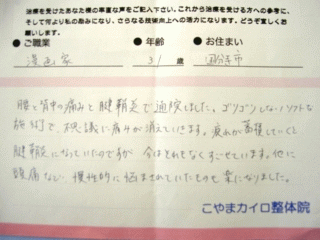 治療を受けたあなた様の率直な声をご記入下さい。これから治療を受ける方への参考に、
そして何より私の励みになり、さらなる技術向上への活力になります。どうぞ宜しくお
願いします。
●ご職業 ●年齢 ●お住まい
漫画家 31歳 国分寺市
腰と背中の痛みと腱鞘炎で通院しました。ゴリゴリしないソフトな
施術で、不思議に痛みが消えていきます。疲れが蓄積していくと
腱鞘炎になっていたのですが 今はそれもなくすごせています。他に
頭痛など、慢性的に悩まされていたものも楽になりました。
こやまカイロ整体院